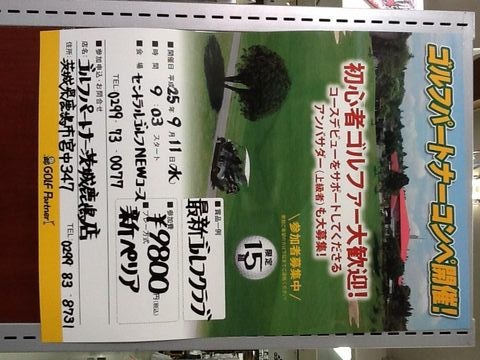 ゴルフパートナーコンペ開催!
初心者ゴルファー大歓迎!
コースデビューをサポートしてくださる
アンバサダー(上級者)も大募集!
参加者募集中
限定
15組
■開催日 平成25年9月11日(水)
■時間 9:03スタート
■会場 セントラルゴルフNEWコース
TEL 0299 73 0077
■賞品一例
最新ゴルフクラブ
■参加費
¥9800円(税込)
■プレー方式
新ペリア
■参加申込・お問合せ
店名 ゴルフパートナー茨城鹿島店
住所 茨城県鹿嶋市宮中347
TEL 0299 83 8731
GOLF Partner